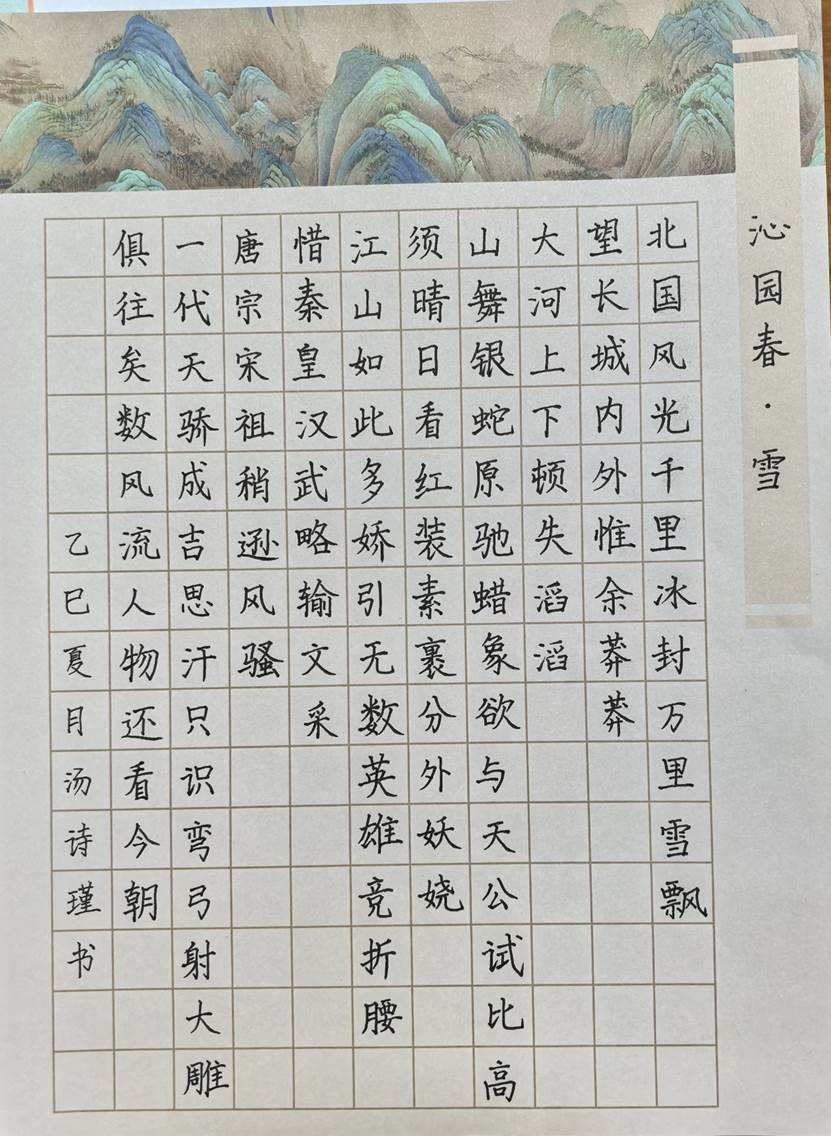 沁园春·雪
北国风光千里冰封万里雪飘
望长城内外惟余莽莽
大河上下顿失滔滔
山舞银蛇原驰蜡象欲与天公试比高
须晴日看红装素裹分外妖娆
江山如此多娇引无数英雄竞折腰
惜秦皇汉武略输文采
唐宗宋祖稍逊风骚
一代天骄成吉思汗只识弯弓射大雕
俱往矣数风流人物还看今朝
乙巳夏月汤诗瑾书